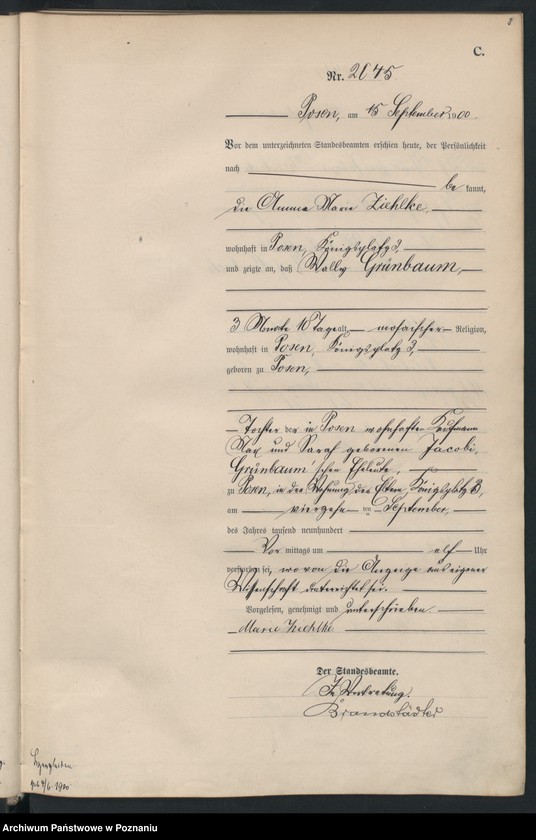 3
C.
Nr. 2045
Posen, am 15 September 1900.
Vor dem unterzeichneten Standesbeamten erschien heute, der Persönlichkeit
nach
be kannt,
die Amme Marie Ziehlke,
wohnhaft in Posen, Königsplatz 3,
und zeigte an, daß Wally Grünbaum,
3 Monate 18 Tage alt, mosaischer Religion,
wohnhaft in Posen, Königsplatz 3,
geboren zu Posen,
Tochter der in Posen wohnhaften Kaufmann
Max und Sarah geborenen Jacobi,
Grünbaum'schen Eheleute,
zu Posen, in der Wohnung der Eltern, Königsplatz 3,
am vierzehn ten September
des Jahres tausend neunhundert
Vor mittags um elf Uhr
verstorben sei, wovon die Anzeige aus eigener
Wissenschaft unterrichtet sei.
Vorgelesen, genehmigt und unterschrieben
Marie Ziehlke
Der Standesbeamte.
In Vertretung.
Brandstädter
1900
Archiwum Państwowe w Poznaniu